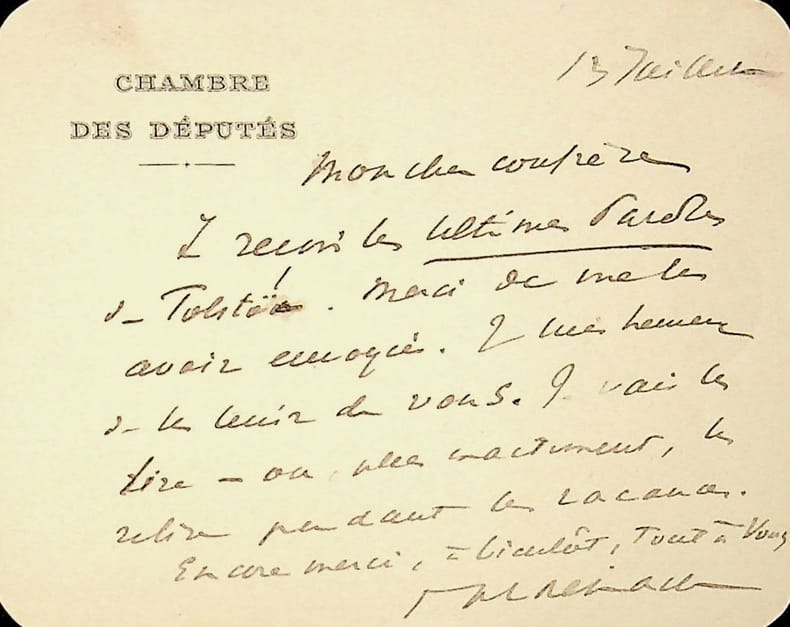 CHAMBRE
DES DÉPUTÉS
13 Juillet
Mon cher confrère
Je reçois les Ultimes Paroles
de Tolstoï. Merci de me les
avoir envoyées. Je suis heureux
de les tenir de vous. Je vais les
lire – ou plus exactement, les
relire pendant les vacances.
Encore merci, à bientôt, Tout à Vous